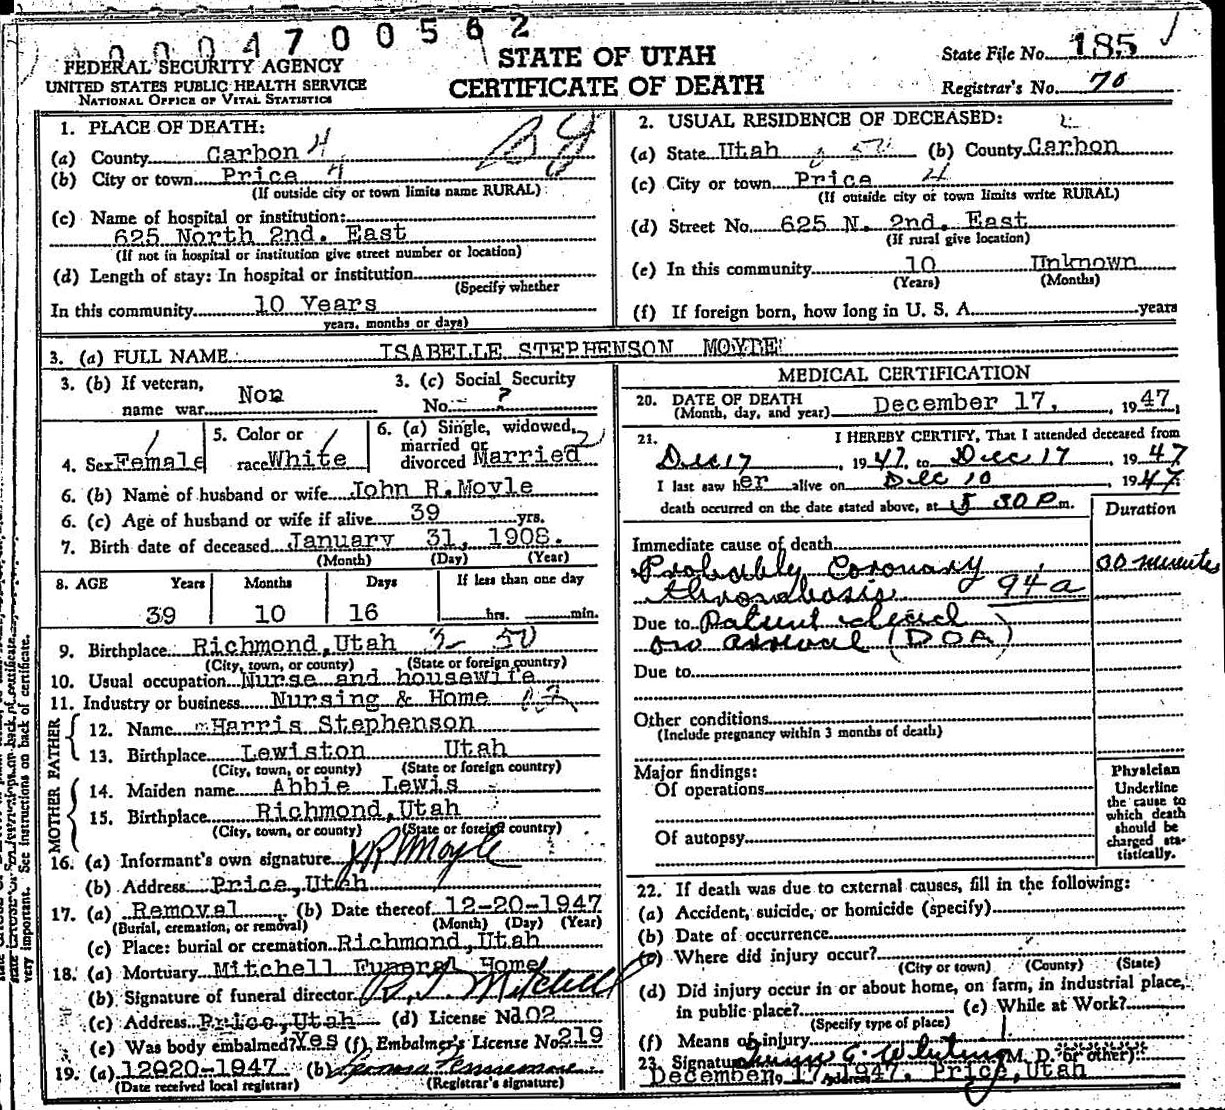 0004700562
STATE OF UTAH
CERTIFICATE OF DEATH
FEDERAL SECURITY AGENCY
UNITED STATES PUBLIC HEALTH SERVICE
NATIONAL OFFICE OF VITAL STATISTICS
State File No. 185
Registrar's No. 70
1. PLACE OF DEATH:
(a) County Carbon 4
(b) City or town Price 4
(If outside city or town limits name RURAL)
(c) Name of hospital or institution:
625 North 2nd. East
(If not in hospital or institution give street number or location)
(d) Length of stay: In hospital or institution
(Specify whether
In this community 10 Years
years, months or days)
2. USUAL RESIDENCE OF DECEASED:
(a) State Utah (b) County Carbon
(c) City or town Price 4
(If outside city or town limits write RURAL)
(d) Street No. 625 N. 2nd. East
(If rural give location)
(e) In this community 10 Unknown
(Years) (Months)
(f) If foreign born, how long in U. S. A. years
3. (a) FULL NAME ISABELLE STEPHENSON MOYLE
3. (b) If veteran, name war Non
3. (c) Social Security No. ?
4. Sex Female
5. Color or race White
6. (a) Single, widowed, married or divorced Married
6. (b) Name of husband or wife John R. Moyle
6. (c) Age of husband or wife if alive 39 yrs.
7. Birth date of deceased January 31, 1908.
(Month) (Day) (Year)
8. AGE Years Months Days If less than one day
39 10 16 hrs. min.
9. Birthplace Richmond, Utah
(City, town, or county) (State or foreign country)
10. Usual occupation Nurse and housewife
11. Industry or business Nursing & Home
FATHER
12. Name Harris Stephenson
13. Birthplace Lewiston Utah
(City, town, or county) (State or foreign country)
MOTHER
14. Maiden name Abbie Lewis
15. Birthplace Richmond, Utah
(City, town, or county) (State or foreign country)
16. (a) Informant's own signature J R Moyle
(b) Address Price, Utah
17. (a) Removal (b) Date thereof 12-20-1947
(Burial, cremation, or removal) (Month) (Day) (Year)
(c) Place: burial or cremation Richmond, Utah
18. (a) Mortuary Mitchell Funeral Home
(b) Signature of funeral director Mitchell
(c) Address Price, Utah (d) License No 102
(e) Was body embalmed? Yes (f) Embalmer's License No 219
19. (a) 12020-1947 (b)
(Date received local registrar) (Registrar's signature)
MEDICAL CERTIFICATION
20. DATE OF DEATH
(Month, day, and year) December 17, 1947,
21. I HEREBY CERTIFY, That I attended deceased from
Dec 17, 1947, to Dec 17, 1947
I last saw her alive on Dec 10 1947.
death occurred on the date stated above, at 5 30 P m.
Duration
Immediate cause of death
Probably Coronary 30 minutes
thrombosis 94a
Due to Patient dead
on arrival (DOA)
Due to
Other conditions
(Include pregnancy within 3 months of death)
Major findings:
Of operations
Of autopsy
Physician
Underline
the cause to
which death
should be
charged sta-
tistically.
22. If death was due to external causes, fill in the following:
(a) Accident, suicide, or homicide (specify)
(b) Date of occurrence
(c) Where did injury occur?
(City or town) (County) (State)
(d) Did injury occur in or about home, on farm, in industrial place,
in public place? (e) While at Work?
(Specify type of place)
(f) Means of injury
23. Signature (M. D. or other)
December, 17, 1947. Price, Utah
very important. See instructions on back of certificate.